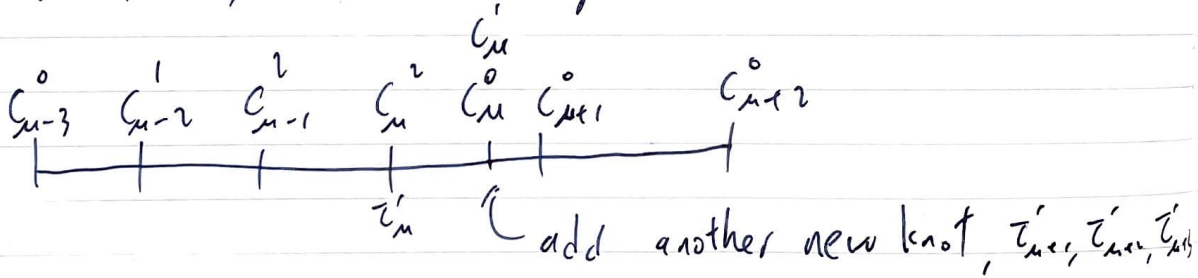 C'μ
C⁰μ-3 C¹μ-2 C²μ-1 C²μ C⁰μ C⁰μ+1 C⁰μ+2
τ'μ
add another new knot, τ'μ+1, τ'μ+2, τ'μ+3